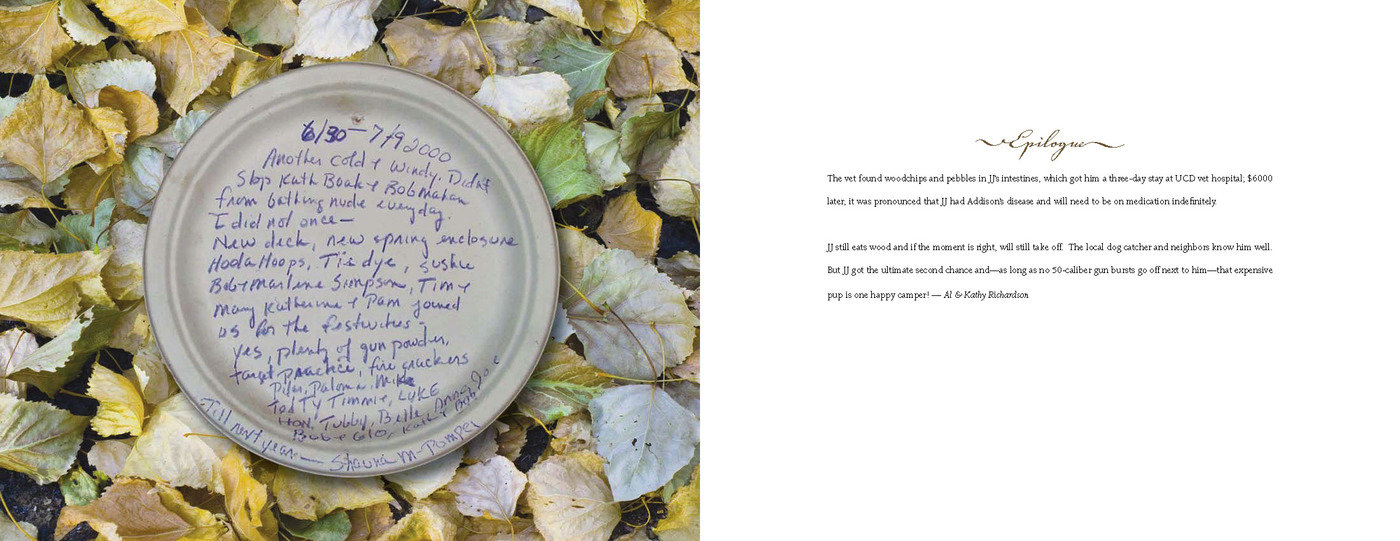 6/30 - 7/9 2000
Another cold + windy. Didn't
Stop Kath Boak + Bob Mahan
from bathing nude everyday.
I did not once—
New deck, new spring enclosure
Hoola Hoops, Tie dye, sushie
Bob + Marlene Simpson, Tim +
Mary Katherine + Pam joined
us for the festivities -
yes, plenty of gun powder,
target practice, fire crackers
Paloma, Mike
Tod Ty Timmie, LUKE
Hon, Tubby, Belle, Anna, Joe
Bob + Glo, Kath + Bob
Till next year — Shauna M-Pompei
Epilogue
The vet found woodchips and pebbles in JJ's intestines, which got him a three-day stay at UCD vet hospital; $6000
later, it was pronounced that JJ had Addison's disease and will need to be on medication indefinitely.
JJ still eats wood and if the moment is right, will still take off. The local dog catcher and neighbors know him well.
But JJ got the ultimate second chance and—as long as no 50-caliber gun bursts go off next to him—that expensive
pup is one happy camper! — Al & Kathy Richardson